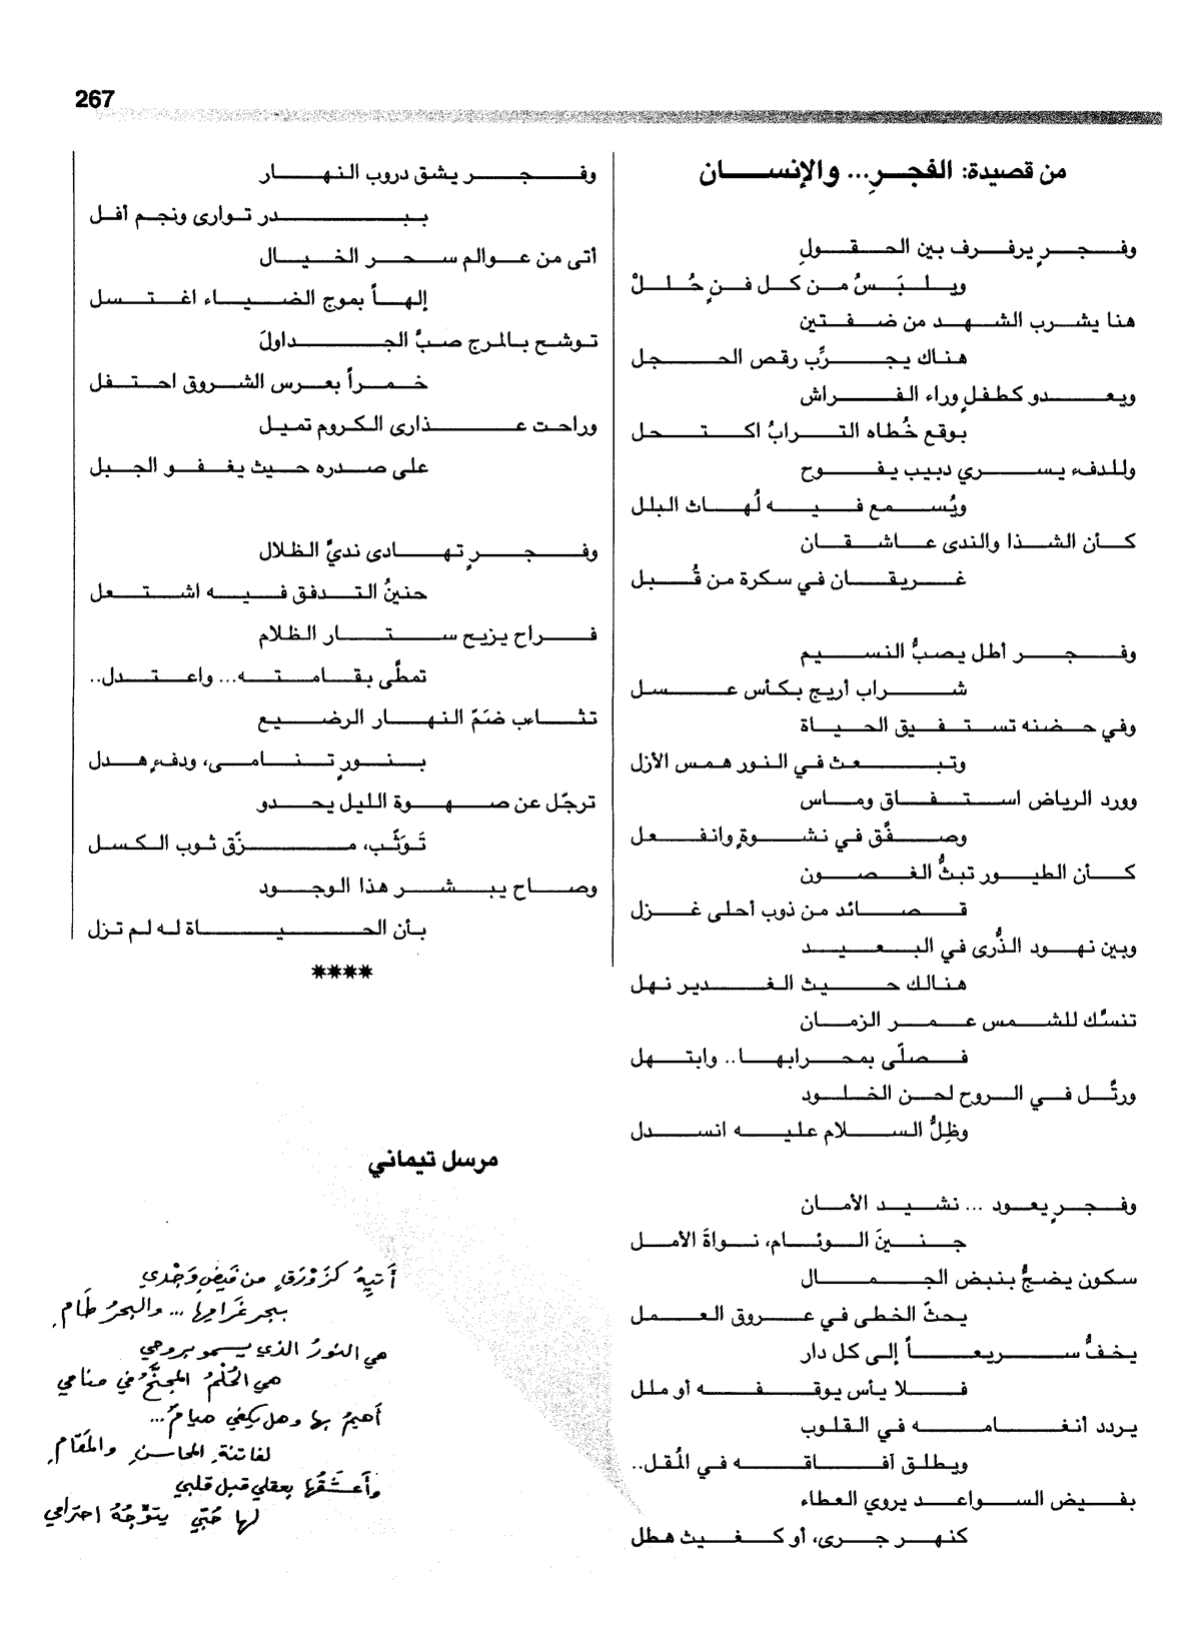 267
من قصيدة: الفجرِ... والإنسان
وفجرٍ يرفرف بين الحقولِ
ويلبَسُ من كل فنٍ حُللْ
هنا يشرب الشهد من ضفتين
هناك يجرِّب رقص الحجل
ويعدو كطفلٍ وراء الفراش
بوقع خُطاه الترابُ اكتحل
وللدفء يسري دبيب يفوح
ويُسمع فيه لُهاث البلل
كأن الشذا والندى عاشقان
غريقان في سكرة من قُبل
وفجر أطل يصبُّ النسيم
شراب أريج بكأس عسل
وفي حضنه تستفيق الحياة
وتبعث في النور همس الأزل
وورد الرياض استفاق وماس
وصفَّق في نشوةٍ وانفعل
كأن الطيور تبثُّ الغصون
قصائد من ذوب أحلى غزل
وبين نهود الذُّرى في البعيد
هنالك حيث الغدير نهل
تنسَّك للشمس عمر الزمان
فصلّى بمحرابها.. وابتهل
ورتَّل في الروح لحن الخلود
وظِلُّ السلام عليه انسدل
وفجرٍ يعود ... نشيد الأمان
جنينَ الوئام، نواةَ الأمل
سكون يضجُّ بنبض الجمال
يحثّ الخطى في عروق العمل
يخفُّ سريعاً إلى كل دار
فلا يأس يوقفه أو ملل
يردد أنغامه في القلوب
ويطلق آفاقه في المُقل..
بفيض السواعد يروي العطاء
كنهر جرى، أو كغيث هطل
وفجر يشق دروب النهار
ببدر توارى ونجم أفل
أتى من عوالم سحر الخيال
إلهاً بموج الضياء اغتسل
توشح بالمرج صبَّ الجداولَ
خمراً بعرس الشروق احتفل
وراحت عذارى الكروم تميل
على صدره حيث يغفو الجبل
وفجرٍ تهادى نديَّ الظلال
حنينُ التدفق فيه اشتعل
فراح يزيح ستار الظلام
تمطَّى بقامته... واعتدل..
تثاءب ضَمّ النهار الرضيع
بنورٍ تنامى، ودفءٍ هدل
ترجّل عن صهوة الليل يحدو
تَوَثَّب، مزّق ثوب الكسل
وصاح يبشر هذا الوجود
بأن الحياة له لم تزل
****
مرسل تيماني
أَتيهُ كزَوْرَقٍ من فَيضِ وَجْدي
ببحر غَرامِها ... والبحرُ طَامِ
هي النورُ الذي يسمو بروحي
هي الحُلْمُ المجنَّحُ في منامي
أَهيمُ بها وهل يكفي هيامٌ...
لفاتنةِ المحاسنِ والمَقَامِ
وأَعشَقُها بعقلي قبل قلبي
لها حُبّي يتوِّجُهُ احترامي